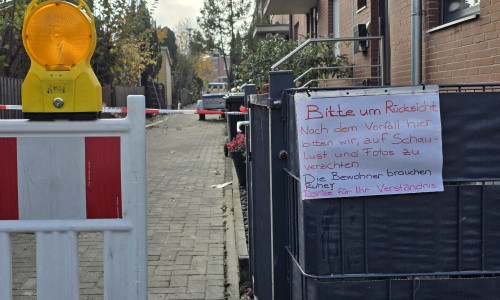 Bitte um Rücksicht
Nach dem Vorfall hier
bitten wir, auf Schau-
lust und Fotos zu
verzichten.
Die Bewohner brauchen
Ruhe!
Danke für Ihr Verständnis